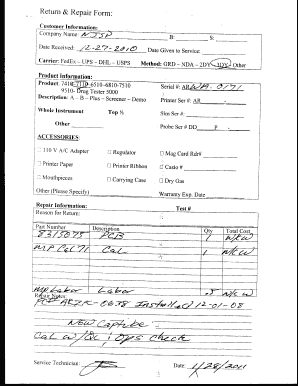 Return & Repair Form:
Customer Information:
Company Name: NJSP B: S:
Date Received: 12-27-2010 Date Given to Service:
Carrier: FedEx – UPS – DHL – USPS Method: GRD – NDA – 2DY – 3DY Other
Product Information:
Product 7410-7110-6510-6810-7510 Serial #: ARWA-0171
9510- Drug Tester 5000 Printer Ser #: AR
Description: A – B – Plus – Screener – Demo
Whole Instrument Top ½ Sim Ser #:
Other Probe Ser # DD P
ACCESSORIES:
□ 110 V A/C Adapter □ Regulator □ Mag Card Rdr#
□ Printer Paper □ Printer Ribbon □ Case #
□ Mouthpieces □ Carrying Case □ Dry Gas
Other (Please Specify) Warranty Exp. Date
Repair Information: Test #
Reason for Return:
Part Number Description Qty Total Cost
8315075 PCB 1 N/C W
MP Cal 71 Cal 1 N/C W
MP Labor Labor .5 N/C W
Repair Notes:
PCB ARZK-0638 Installed 12-01-08
New
Cal w/ Ops Check
Service Technician: Date 1/28/2011